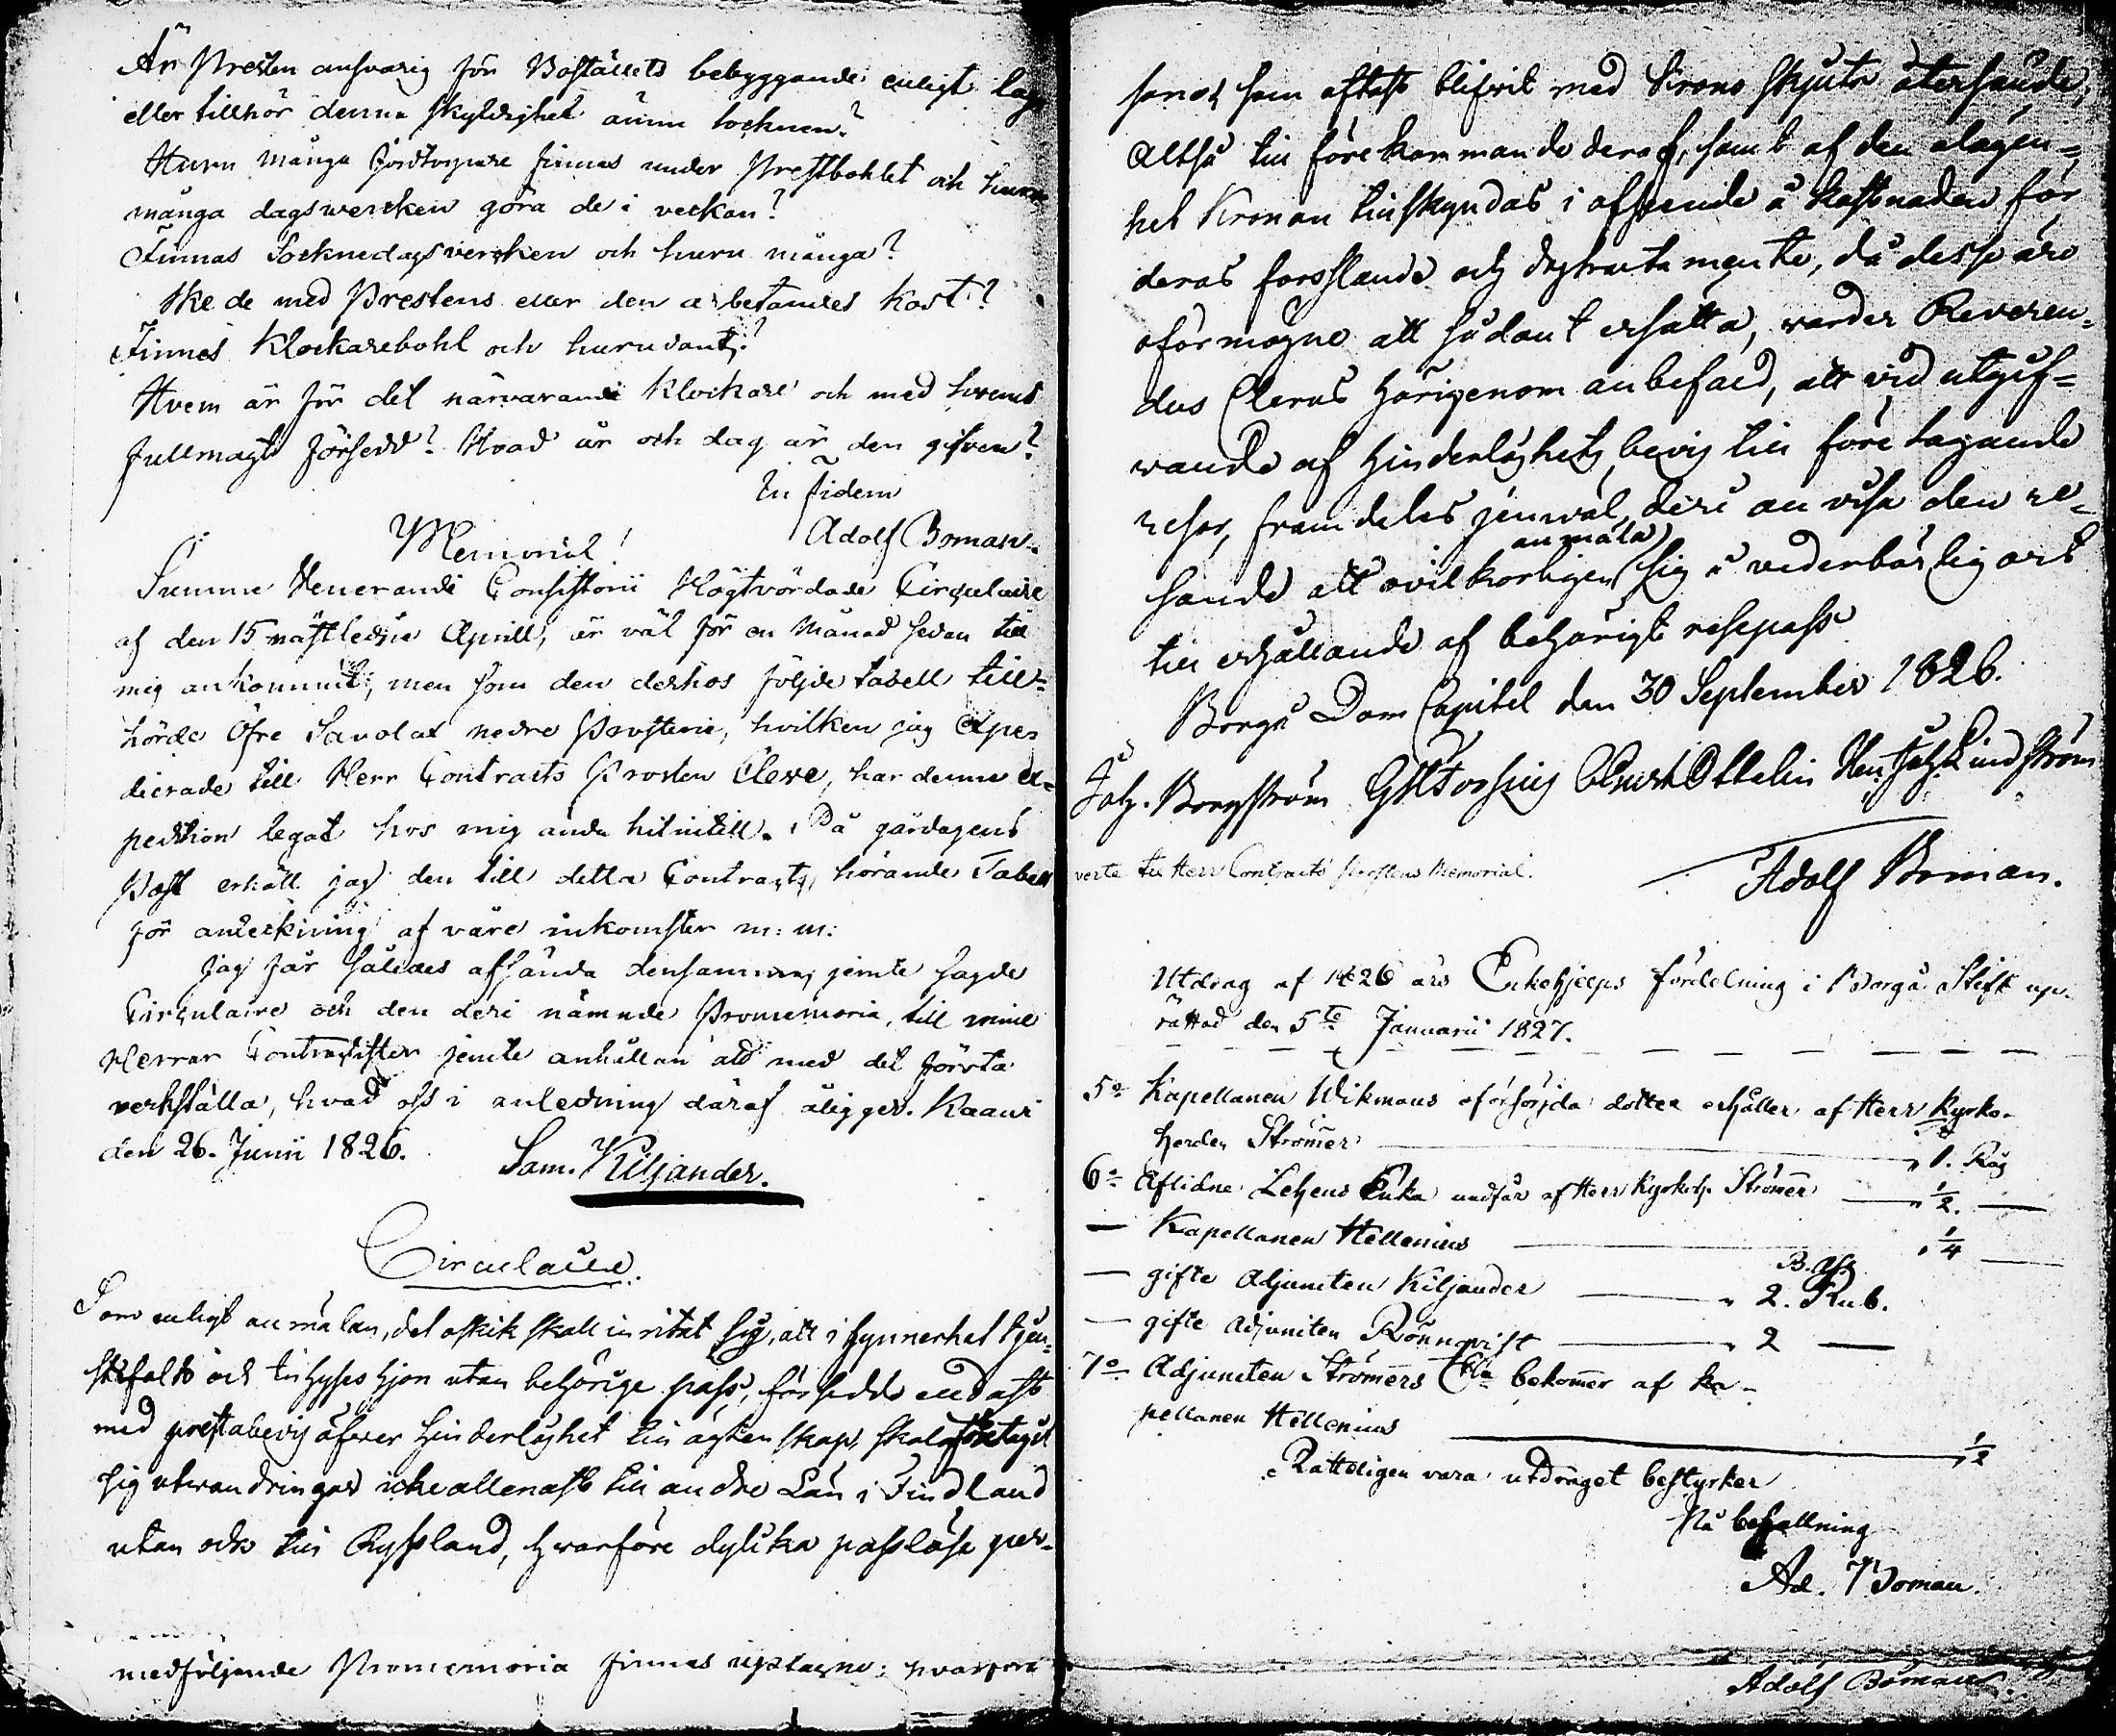 Är Presten ansvarig för Boställets bebyggande enligt lag
eller tillhör denna skyldighet ännu socknen?
Huru många Jordtorpare finnas under Prestbohlet och huru
många dagswercken göra de i veckan?
Finnas Socknedagsvercken och huru många?
Ske de med Prestens eller den arbetandes kost?
Finnes Klockarebohl och hurudant?
Hvem är för det närvarande Klockare och med hvems
fullmagt försedd? Hvad år och dag är den gifven?
In fidem
Adolf Boman.
Memorial!
Summe Venerandi Consistorii Högtvördade Circulaire
af den 15 nästledne Aprill, är väl för en Månad sedan till
mig ankommit, men som den derhos följde tabell till-
hörde Öfre Savolax nedre Prosterie, hvilken jag expe
dierade till Herr Contracts Prosten Cleve, har denne ex-
pedition legat hos mig ända hitintill. På gårdagens
Post erhöll jag den till detta Contracts hörande Tabell
för anteckning af våre inkomster m: m:
Jag får således afsända densamma, jemte sagde
Circulaire och den deri nämnde Promemoria, till mine
Herrar Contractister jemte anhållan att med det första
verkställa, hvad oss i anledning däraf åligger. Kaavi
den 26. Junii 1826.
Sam. Kiljander.
Circulaire.
Som enligt anmälan, det oskik skall inritat sig, att i synnerhet tjen-
stefolk och inhyses hjon utan behörige pass, försedde endast
med prestabevis öfwer hinderlöshet till ägtenskap, skola företagit
sig utwandringar icke allenast till andre Län i Findland
utan och till Ryssland, hwarföre dylika passlösa per-
medföljande Promemoria finnas uptagne; hvarföre
soner som oftast blifvit med Krono skjuts återsände,
Altså till förekommande deraf, samt af den olägen-
het Kronan tillskyndas i afseende å kostnaden för
deras forsslande och dagtractamente, då desse äro
oförmögne att sådant ersätta, warder Reveren-
dus Clerus härigenom anbefald, att vid utgif-
wande af hinderlöshets bevis till företagande
resor, framdeles jemwäl deri anvisa den re-
anmäla
sande att ovilkorligen sig å vederbörlig ort
till erhållande af behörigt resepass
Borgå Dom Capitel den 30 September 1826.
Joh. Borgström Ottelin Lindström
Adolf Boman.
verte till Herr Contracts Prostens Memorial.
Utdrag af 1826 års Enkehjelps fördelning i Borgå Stift up-
rättad den 5te Januarii 1827.
5o Kapellanen Wikmans oförsörjda dotter erhåller af Herr Kyrko-
herden Strömer 1. Råg
6o Aflidne Enka undfår af Herr Kyrkoh. Strömer 1/2. —
— Kapellanen Hellenius 1/4 —
B. Ass.
— gifte Adjuncten Kiljander 2. Rub.
— gifte Adjuncten Rönnqvist 2 —
7o Adjuncten Strömers Enka bekommer af Ka-
pellanen Hellenius 1/2
Rätteligen vara utdraget bestyrker
På befallning
Ad. Boman.
Adolf Boman.